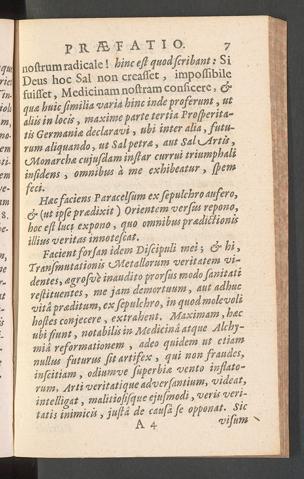 PRÆFATIO. 7
nostrum radicale! hinc est quod scribant: Si
Deus hoc Sal non creasset, impossibile
fuisset, Medicinam nostram conficere, &
quæ huic similia varia hinc inde proferunt, ut
aliis in locis, maxime parte tertia Prosperita-
tis Germaniæ declaravi, ubi inter alia, futu-
rum aliquando, ut Sal petræ, aut Sal Artis,
Monarchæ cujusdam instar currui triumphali
insidens, omnibus à me exhibeatur, spem
feci.
Hæc faciens Paracelsum ex sepulchro aufero,
& (ut ipse prædixit) Orientem versus repono,
hoc est luci expono, quo omnibus prædictionis
illius veritas innotescat.
Facient forsan idem Discipuli mei; & hi,
Transmutationis Metallorum veritatem vi-
dentes, ægrosve inaudito prorsus modo sanitati
restituentes, me jam demortuum, aut adhuc
vitâ præditum, ex sepulchro, in quod malevoli
hostes conjecere, extrahent. Maximam, hac
ubi fiunt, notabilis in Medicinâ atque Alchy-
miâ reformationem, adeo quidem ut etiam
nullus futurus sit artifex, qui non fraudes,
inscitiam, odiumve superbiæ vento inflato-
rum. Arti veritatique adversantium, videat,
intelligat, malitiosisque ejusmodi, veris veri-
tatis inimicis, justâ de causâ se opponat. Sic
A 4 visum